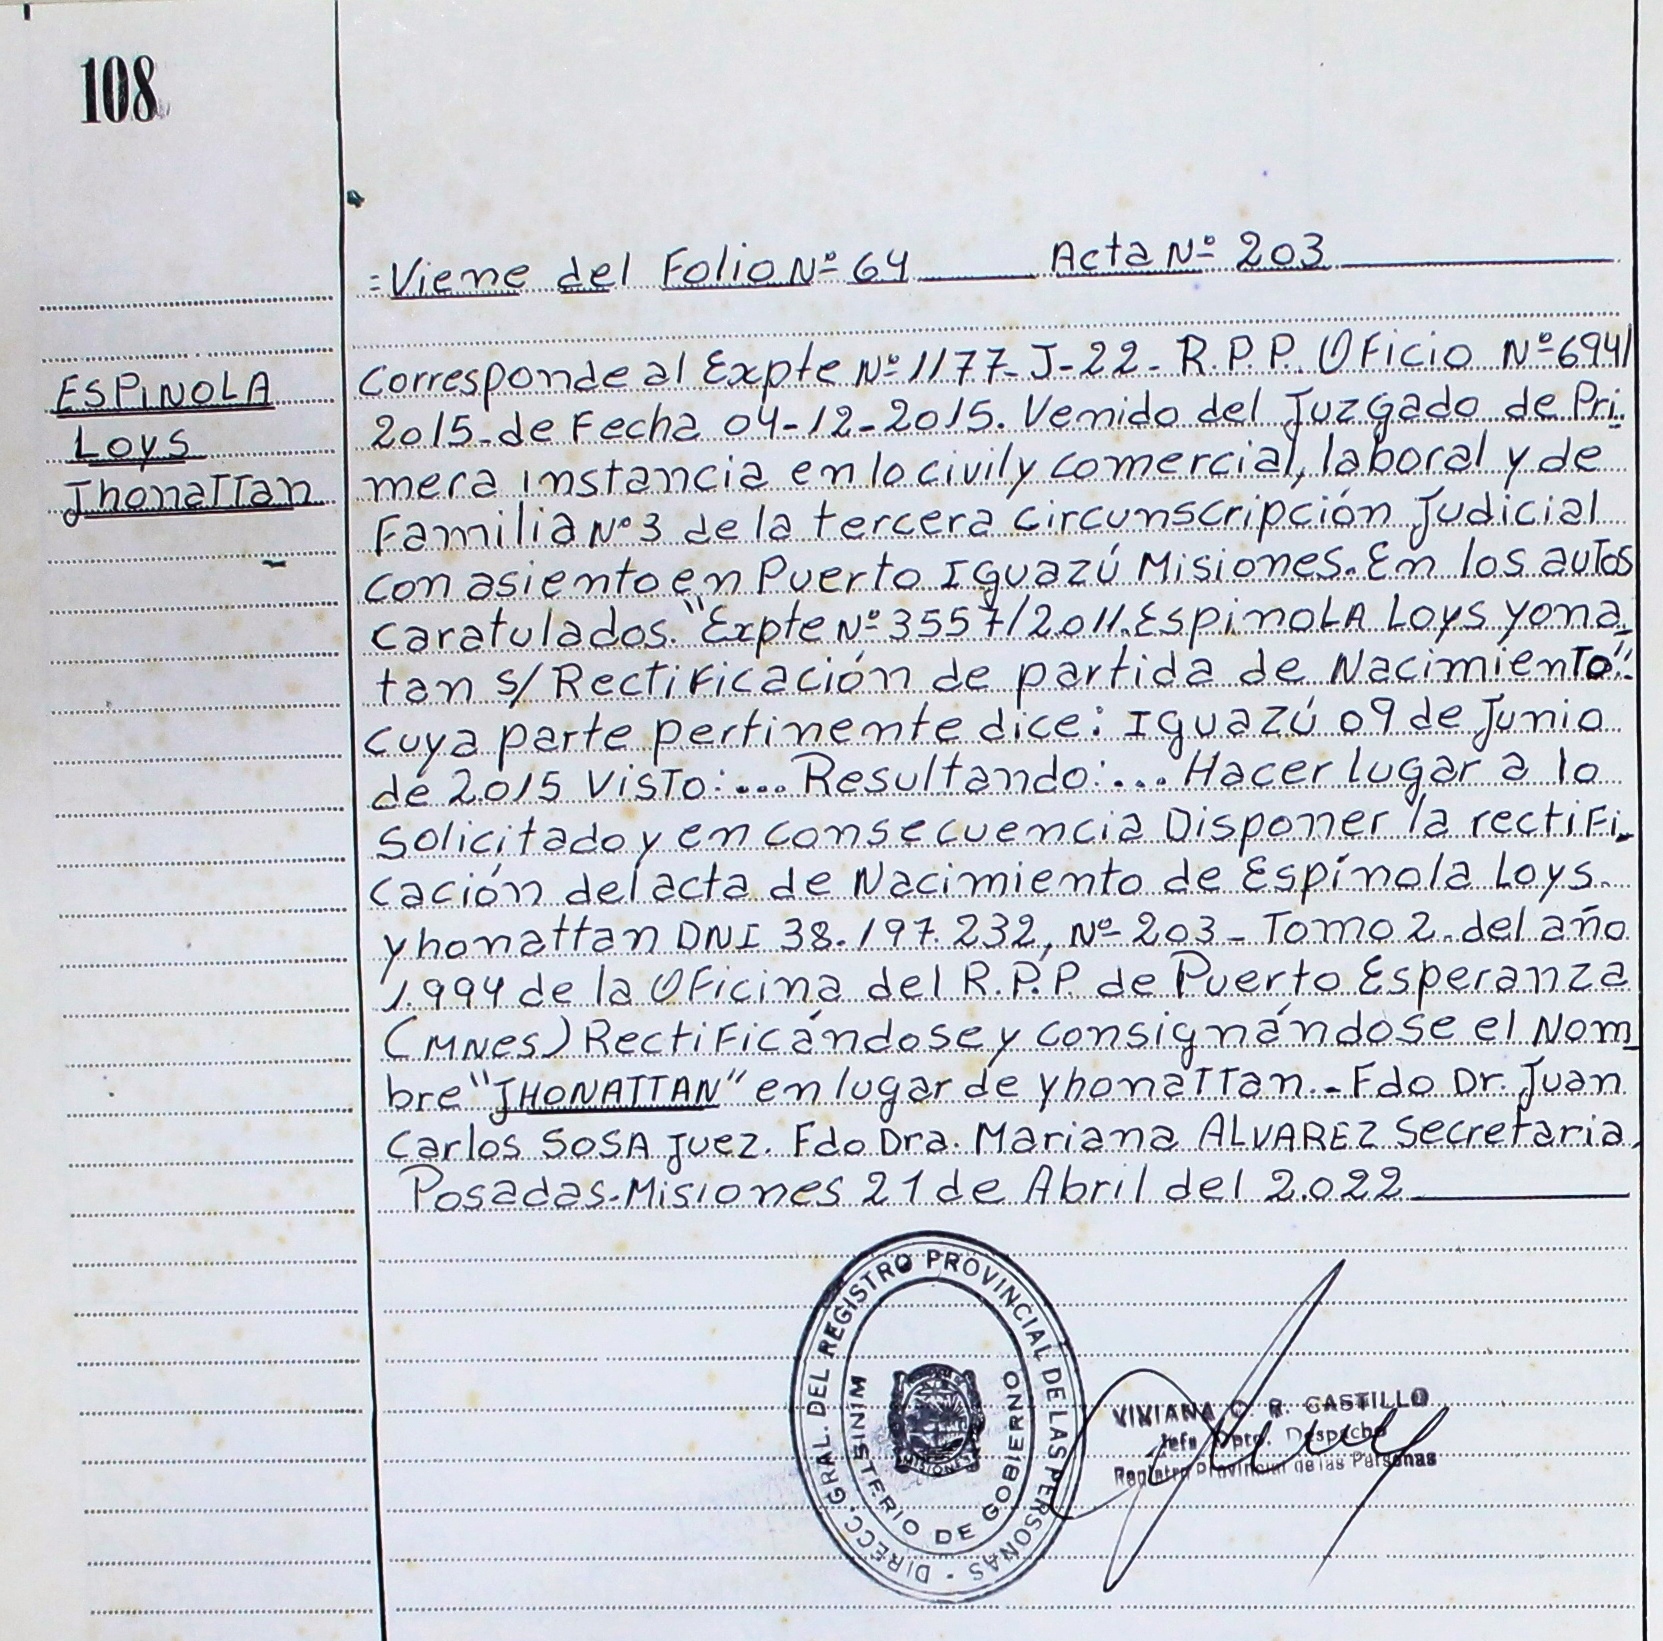 108
=Viene del Folio Nº 64 Acta Nº 203
ESPINOLA
Loys
JhonaTTan
Corresponde al Expte Nº 1177-J-22- R.P.P. Oficio Nº 694/
2015-de Fecha 04-12-2015. Venido del Juzgado de Pri-
mera instancia en lo civil y comercial, laboral y de
Familia Nº3 de la tercera circunscripción Judicial
con asiento en Puerto Iguazú Misiones. En los autos
caratulados. "Expte Nº 3557/2011. EspinoLA Loys yona-
tan s/ Rectificación de partida de NacimienTo".
cuya parte pertinente dice: Iguazú 09 de Junio
de 2015 VisTo:... Resultando:... Hacer lugar a lo
solicitado y en consecuencia Disponer la rectifi-
cación del acta de Nacimiento de Espínola Loys.
yhonattan DNI 38.197.232, Nº 203- Tomo 2. del año
1.994 de la Oficina del R.P.P. de Puerto Esperanza
(MNes) Rectificándose y consignándose el Nom-
bre "JHONATTAN" en lugar de yhonaTTan.- Fdo Dr. Juan
Carlos SOSA Juez. Fdo Dra. Mariana ALVAREZ Secretaria.
Posadas-Misiones 21 de Abril del 2.022
DIRECC. GRAL. DEL REGISTRO PROVINCIAL DE LAS PERSONAS -
MINISTERIO DE GOBIERNO
MISIONES
VIVIANA C. R. CASTILLO
Jefa Dpto. Despacho
Registro Provincial de las Personas